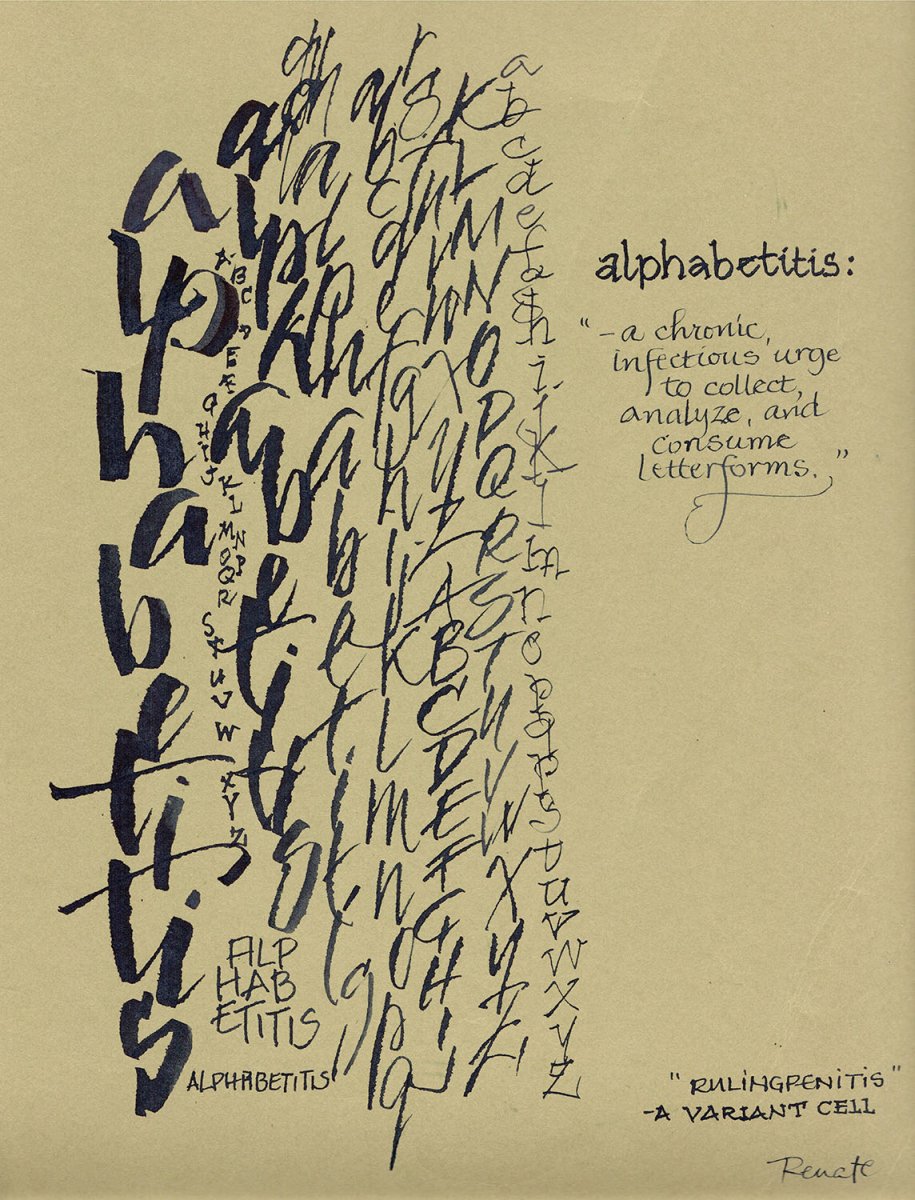 alphabetitis
alphabetitis
alphabetitis
a b c d e f g h i j k l m n o p q
r s t u v w x y z
A B C D E F G H I J
K L M N O P Q R S T U V W X Y Z
a b c d e f g h i j k l m n o p q r s t u v w x y z
ALP
HAB
ETITIS
ALPHABETITIS
alphabetitis:
"-a chronic,
infectious urge
to collect,
analyze, and
consume
letterforms."
"RULINGPENITIS"
-A VARIANT CELL
Renate